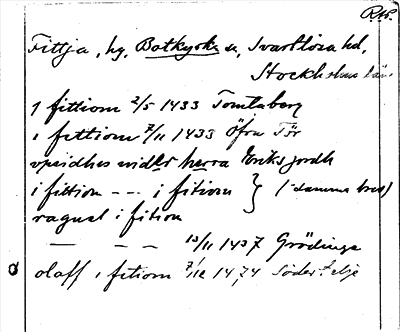 RAP.
Fittja, by, Botkyrka sn, Svartlösa hd,
Stockholms län.
j fittiom 2/5 1433 Tomtaberg
i fittiom 7/11 1433 Öfra Tör
vpridhes widh herra Eriks jordh
i fittion --- i fitiom } (=samma brev)
ragual i fition
— - - 13/11 1437 Grödinge
olaff i fitiom 7/12 1474 Södertelje